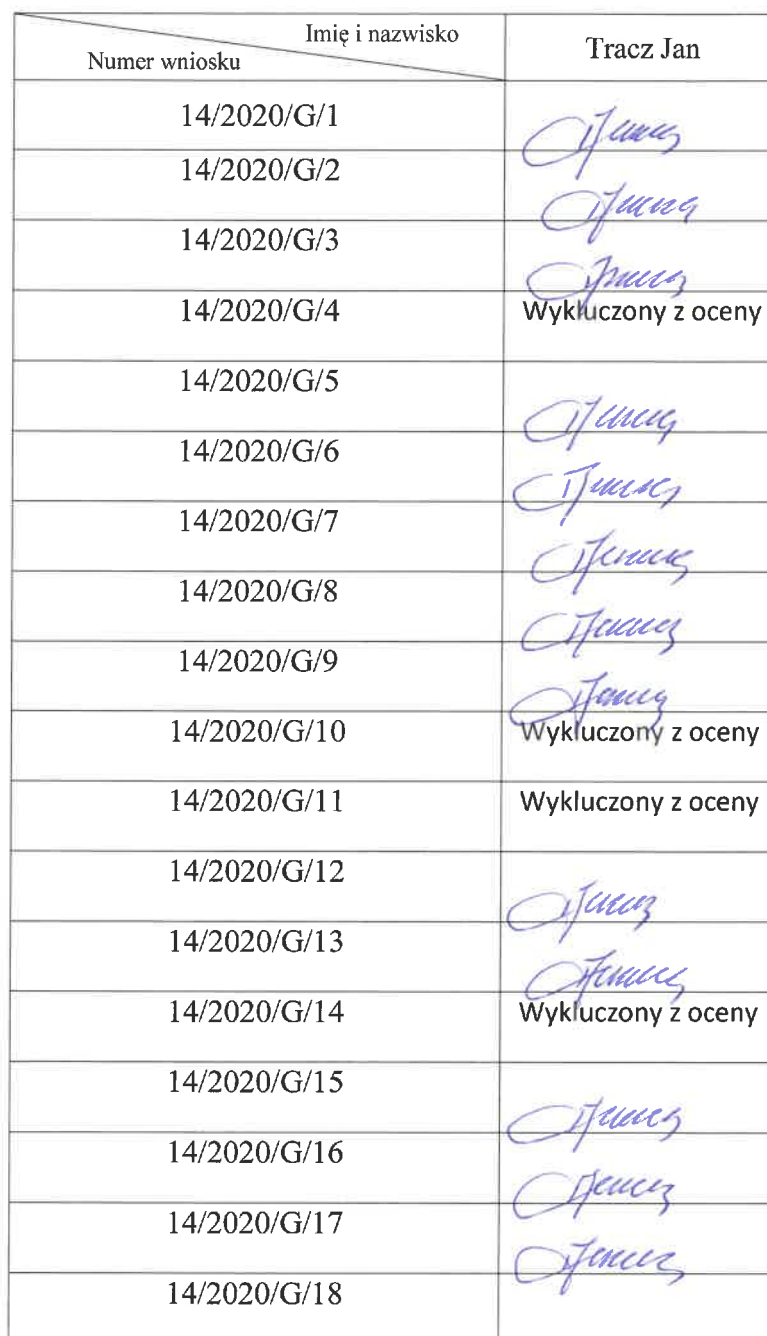 Imię i nazwisko
Numer wniosku
Tracz Jan
14/2020/G/1
14/2020/G/2
14/2020/G/3
14/2020/G/4 Wykluczony z oceny
14/2020/G/5
14/2020/G/6
14/2020/G/7
14/2020/G/8
14/2020/G/9
14/2020/G/10 Wykluczony z oceny
14/2020/G/11 Wykluczony z oceny
14/2020/G/12
14/2020/G/13
14/2020/G/14 Wykluczony z oceny
14/2020/G/15
14/2020/G/16
14/2020/G/17
14/2020/G/18